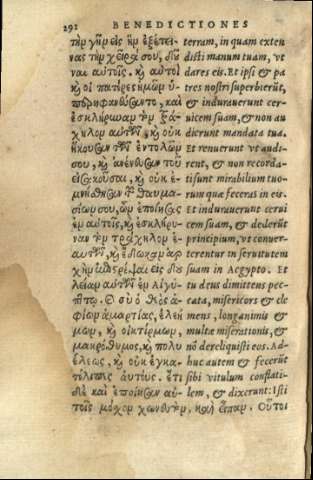 292 BENEDICTIONES
τὴν γῆν εἰς ἣν ἐξέτει-
νας τὴν χεῖρά σου, δοῦ
ναι αὐτοῖς. καὶ αὐτοὶ
καὶ οἱ πατέρες ἡμῶν ὑ-
περηφανεύσαντο, καὶ
ἐσκλήρωσαν τὸν τρά-
χηλον αὐτῶν, καὶ οὐκ
ἤκουσαν τῶν ἐντολῶν
σου, καὶ ἀνένευσαν τοῦ
εἰσακοῦσαι, καὶ οὐκ ἐ-
μνήσθησαν τῶν θαυμα-
σίων σου, ὧν ἐποίησας
ἐν αὐτοῖς, καὶ ἐσκλήρυ-
ναν τὸν τράχηλον ἑ-
αυτῶν, καὶ ἔδωκαν ἀρ
χὴν ἐπιστρέψαι εἰς δου
λείαν αὐτῶν ἐν Αἰγύ-
πτῳ. Ὁ σὺ ὁ θεὸς ἀ-
φίων ἁμαρτίας, ἐλεή
μων, καὶ οἰκτίρμων,
μακρόθυμος, καὶ πολυ
έλεως, καὶ οὐκ ἐγκα-
τέλιπες αὐτούς. ἔτι
δὲ καὶ ἐποίησαν αὑ-
τοῖς μόσχον χωνευτὸν, καὶ εἶπαν. Οὗτοι
terram, in quam exten
disti manum tuam, vt
dares eis. Et ipsi & pa
tres nostri superbierūt,
& indurauerunt cer-
uicem suam, & non au
dierunt mandata tua.
Et renuerunt vt audi-
rent, & non recorda-
ti sunt mirabilium tuo-
rum quæ feceras in eis.
Et indurauerunt cerui
cem suam, & dederūt
principium, vt conuer-
terentur in seruitutem
suam in Aegypto. Et
tu deus dimittens pec-
cata, misericors & cle
mens, longanimis &
multæ miserationis, &
nō dereliquisti eos. Ad-
huc autem & fecerūt
sibi vitulum conflati-
lem, & dixerunt: Isti